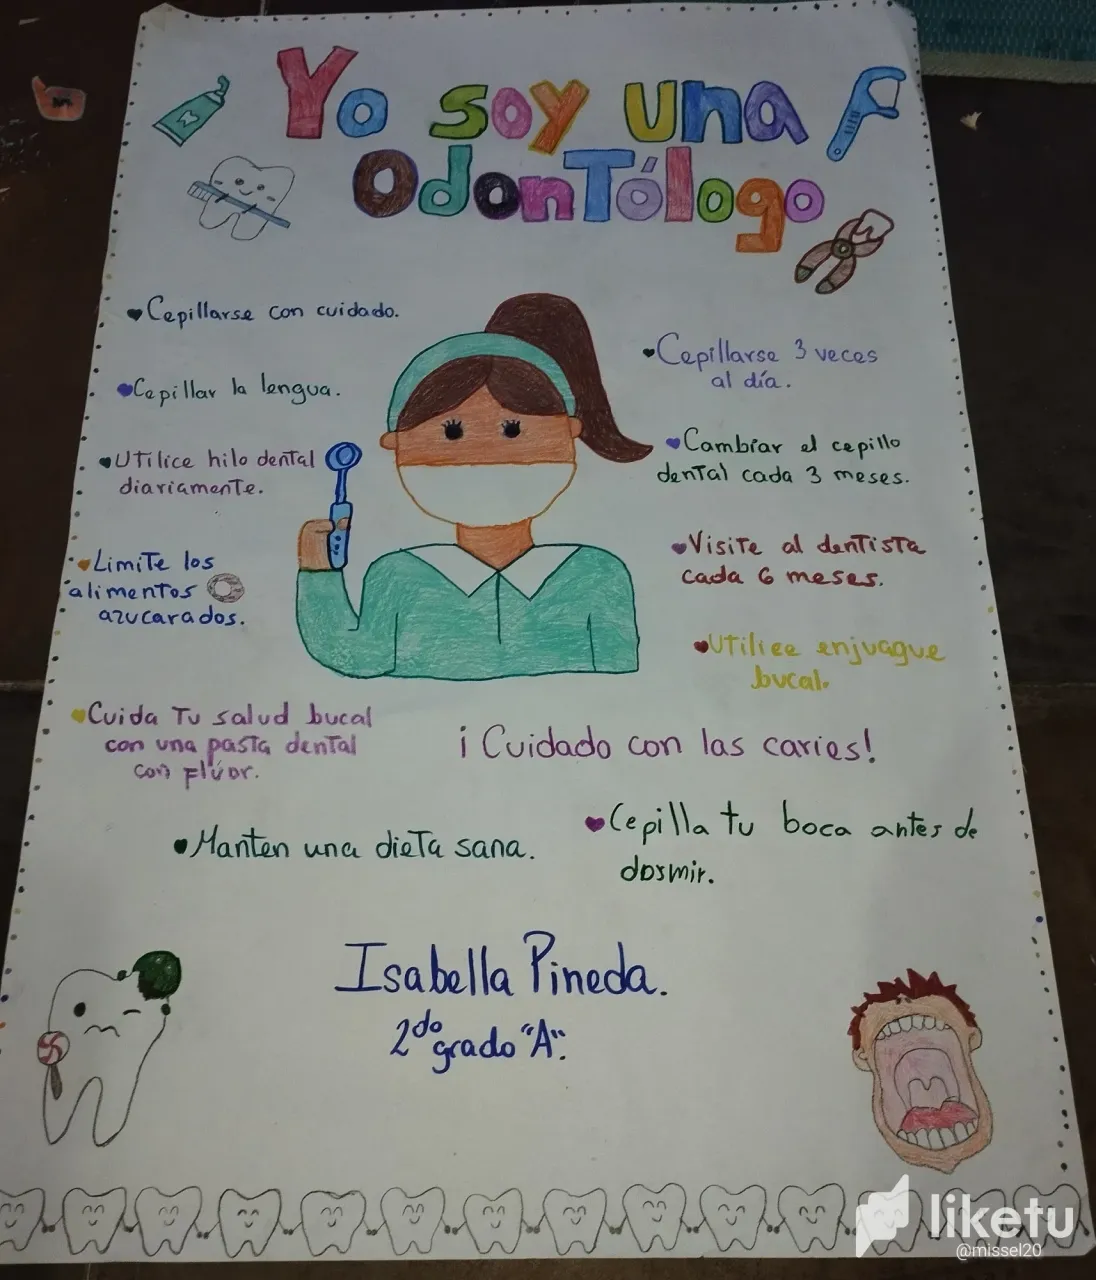 Yo soy una
OdonTólogo
Cepillarse con cuidado.
Cepillar la lengua.
Utilice hilo dental
diariamente.
Limite los
alimentos
azucarados.
Cuida Tu salud bucal
con una pasta dental
con flúor.
Cepillarse 3 veces
al día.
Cambiar el cepillo
dental cada 3 meses.
Visite al dentista
cada 6 meses.
Utilice enjuague
bucal.
¡Cuidado con las caries!
Manten una dieta sana.
Cepilla tu boca antes de
dormir.
Isabella Pineda.
2do grado "A".
liketu
@missel20